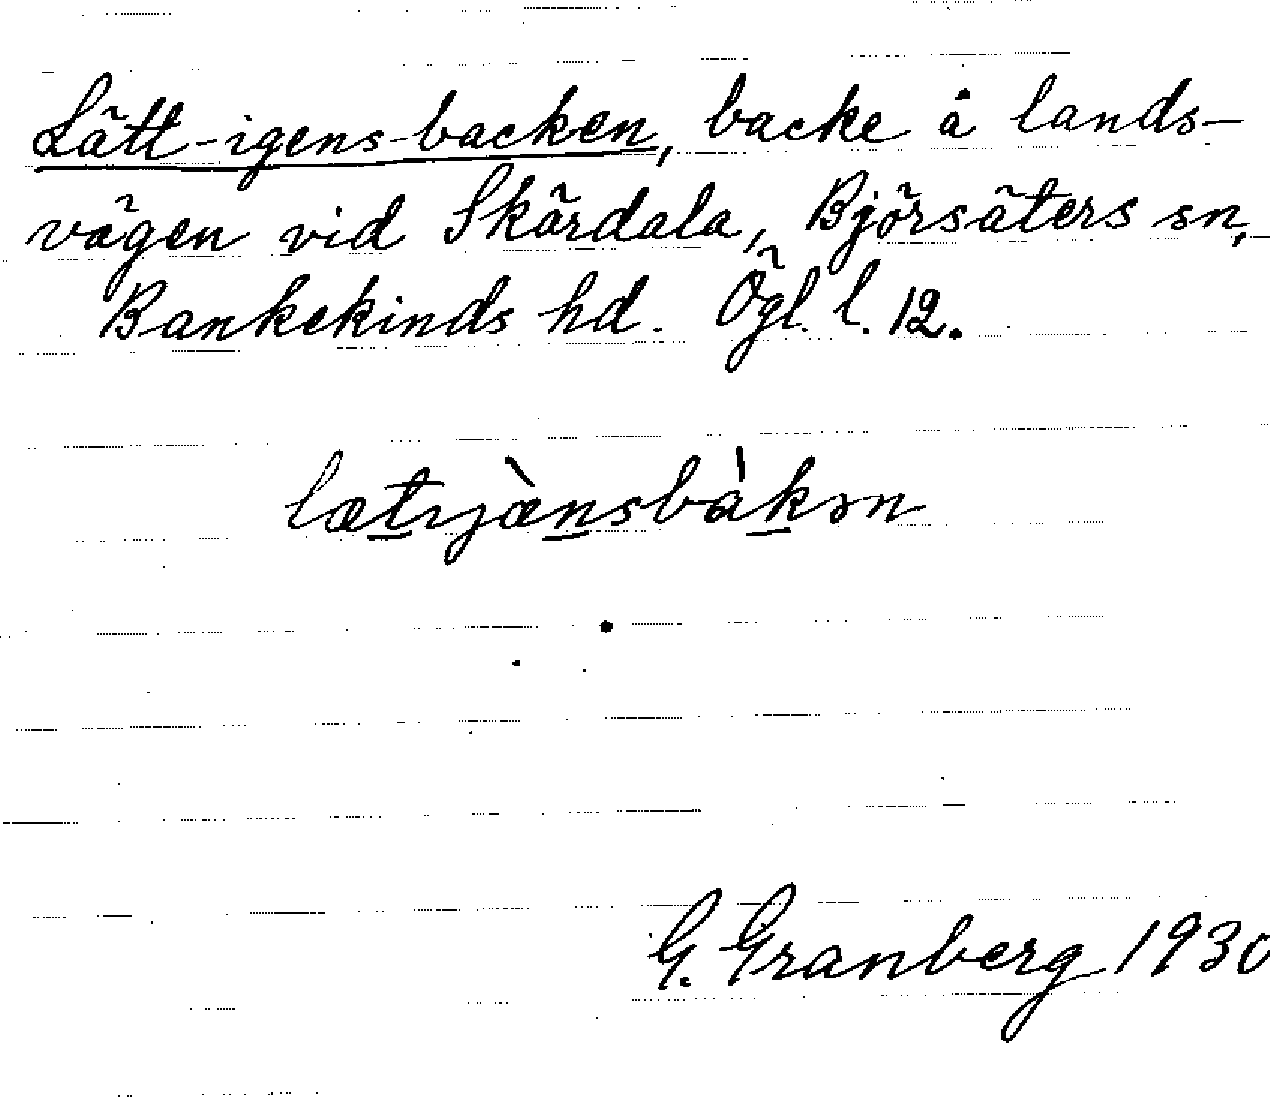 Lätt-igens-backen, backe å lands-
vägen vid Skärdala, Björsäters sn,
Bankekinds hd. Ögl. l. 12.
lætıjæ̀nsbàkən
G. Granberg 1930